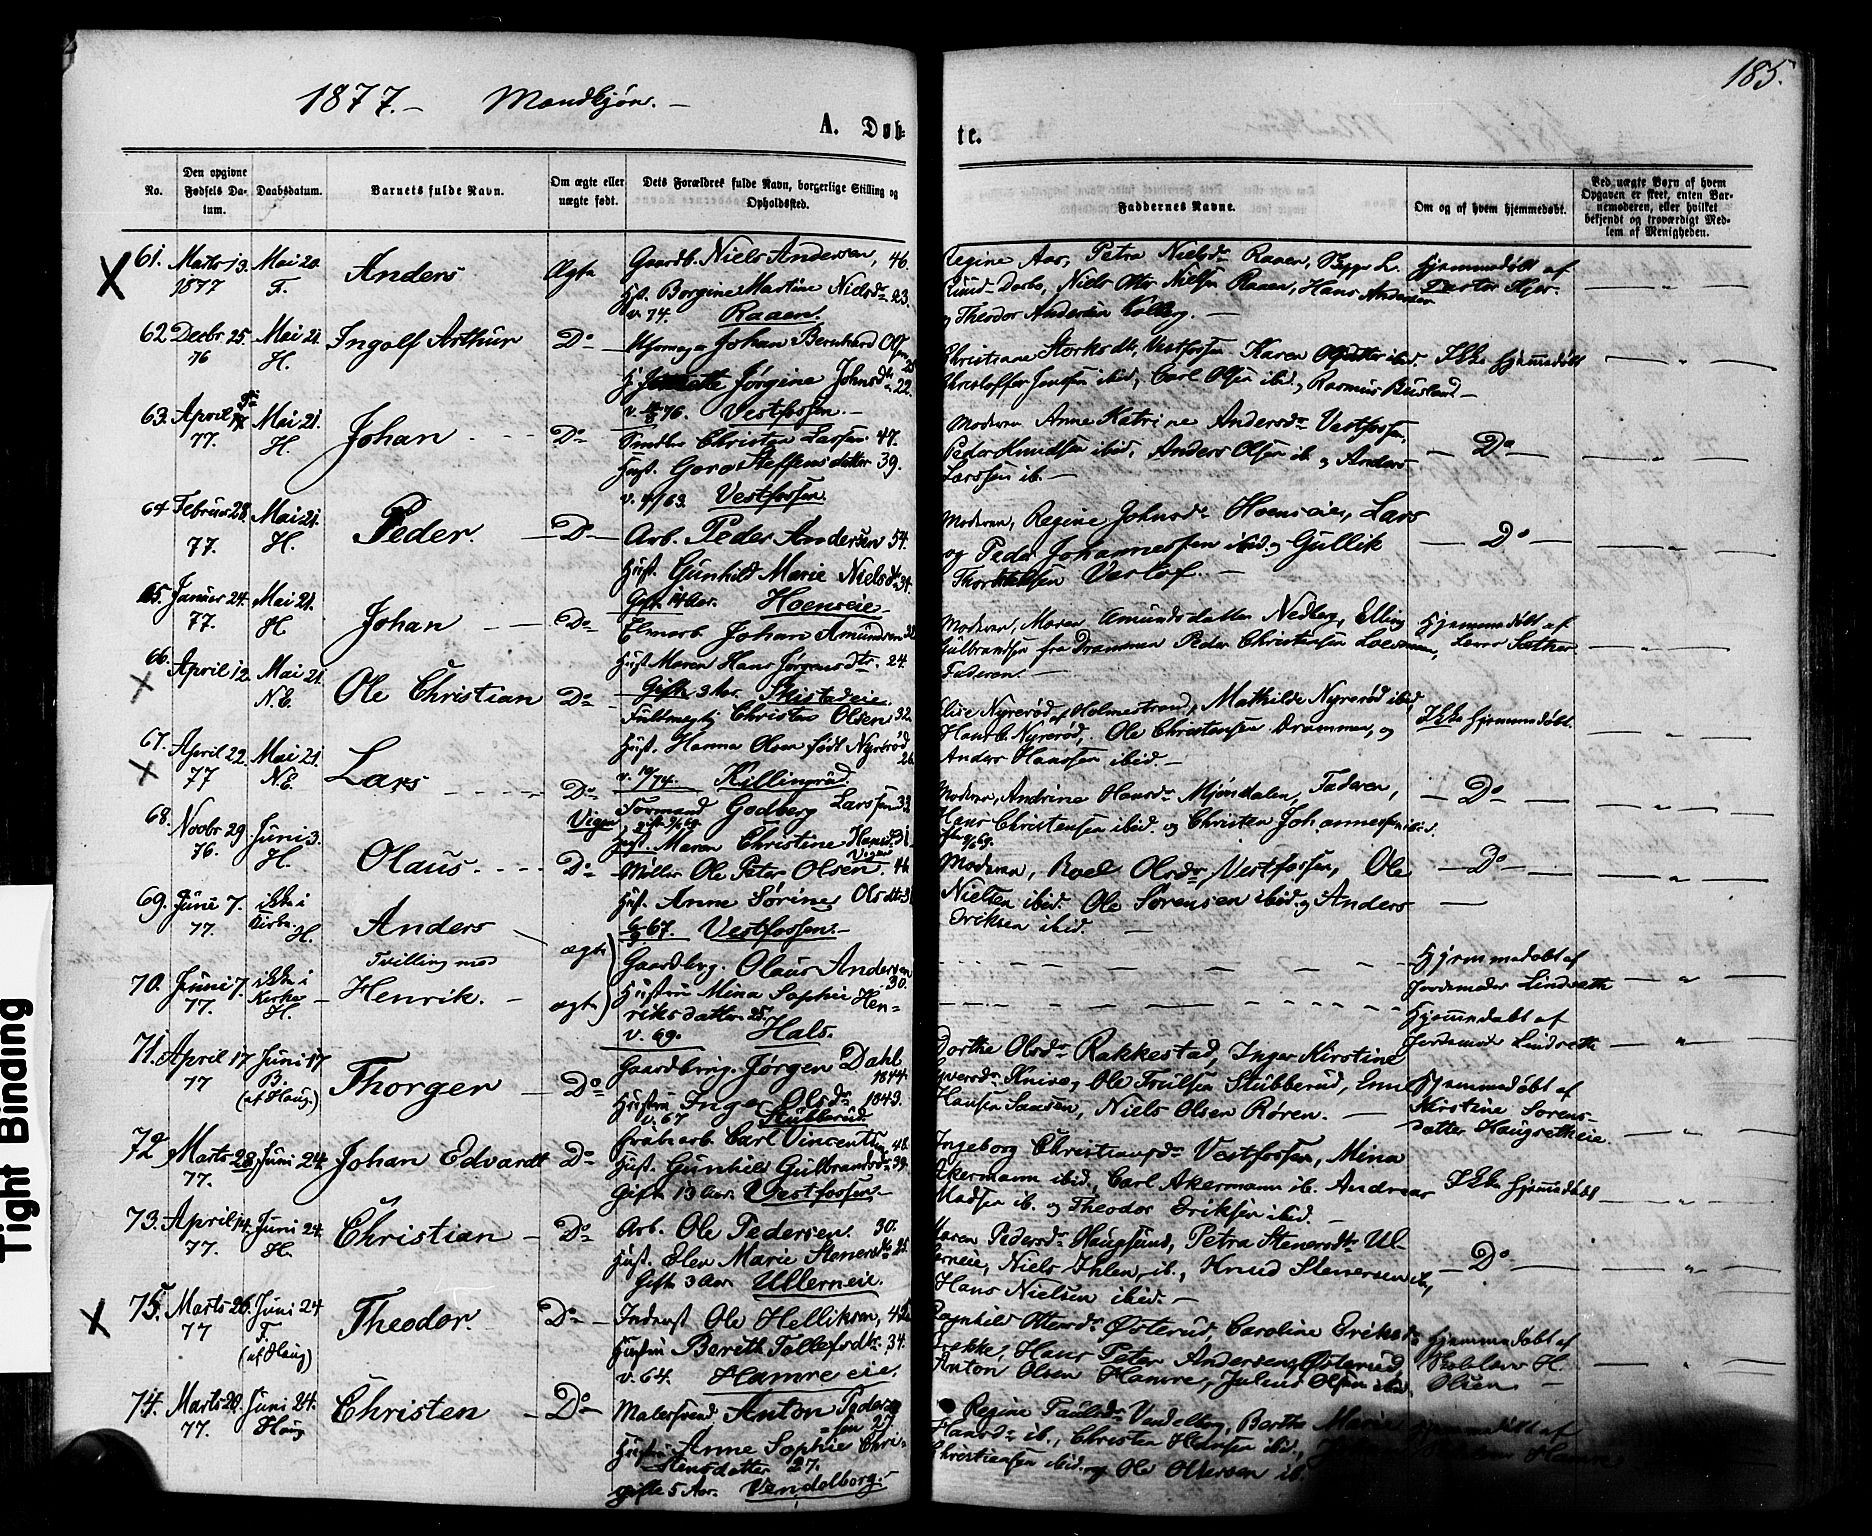 1877.- Mandkjøn.-
185.
A. Døb-
te.
No.
Den opgivne Fødsels Da-
tum.
Daabsdatum.
Barnets fulde Navn.
Om ægte eller
uægte født.
Dets Forældres fulde Navn, borgerlige Stilling og
Opholdssted.
Faddernes Navne.
Om og af hvem hjemmedøbt.
Ved uægte Børn af hvem
Opgaven er skeet, enten Bar-
nemoderen, eller hvilket
bekjendt og troværdigt Med-
lem af Menigheden.
61. Marts 13. Mai 20. Anders Ægte Gaardb. Niels Andersen, 46.
1877 F. Hst. Borgine Martine Nielsdr. 23.
v. 74. Raaen.
Regine Aas, Petra Nielsdr Raaen,
Niels Otto Nielsen Raaen, Hans Andersen
og Theodor Andersen
Hjemmedøbt af
62 Decbr. 25. Mai 21. Ingolf Arthur Do Johan Bernhard Olsen
76 H. Jørgine Johnsdr. 22.
v. 76. Vestfossen.-
Christiane Vestfossen Karen ibid.
Christoffer Jensen ibid, Carl Olsen ibid. og Rasmus
Ikke hjemmedøbt
63. April Mai 21. Johan Do Christen Larsen. 47.
77. H. Hust. Steffensdatter 39.
v. 63. Vestfossen.
Moderen Anne Katrine Andersdr Vestfossen,
Peder Knudsen ibid, Anders Olsen ib. og Anders
Larssen ib.-
Do
64 Februar 28. Mai 21. Peder. Do Arb. Peder Andersen 54.
77. H. Hust. Gunhild Marie Nielsdr. 34.
Gift 14 Aar. Hoenseie
Moderen, Regine Johnsdr Hoenseie, Lars
og Peder Johannessen ibid. og Gullik
Do
65. Januar 24. Mai 21. Johan Do Johan Amundsen 32
77. H Hust. Maren Hans Jørgensdtr. 24.
Gifte 3 Aar. Skistadeie
Moderen, Maren Amundsdatter Nedberg, Elling
Gulbrandsen fra Drammen Peder Christensen
Faderen.-
Hjemmedøbt af
66. April 12. Mai 21. Ole Christian Do Fuldmægtig Christen Olsen 32.
N.E. Hust. Hanna Olsen født Nyrerød
v. 74. Killingrud.
Elise Nyrerød af Holmestrand, Mathilde Nyrerød ibid
Hans C. Nyrerød, Ole Christensen Drammen, og
Anders Hanssen ibid.-
Ikke hjemmedøbt.
67. April 22. Mai 21. Lars Do Formand Godberg Larssen 33
77 N.E. Hust. Maren Christine Hansdr 31.
Moderen, Andrine Hansdr Mjøndalen, Faderen,
Hans Christensen ibid. og Christen Johannesen ibid.
Do
68. Novbr 29. Juni 3. Olaus. Do Møller Ole Peter Olsen. 44
76. H. Hust. Anne Sørine Olsdtr
67. Vestfossen.-
Moderen, Roel Olsdr, Vestfossen, Ole
Nielsen ibid. Ole Sørensen ibid. og Anders
Eriksen ibid.
Do
69. Juni 7. ikke i Anders ægte Gaardbrg. Olaus Andersen
77. Kirke. H. Tvilling med 30.
Hjemmedøbt af
Jordemoder Lindseth
70. Juni 7. ikke i Henrik. ægte Hustru Mina Sophie Hen-
77. Kirke H. riksdatter 25.
v. 69. Hals.
Hjemmedøbt af
Jordemoder Lindseth
71. April 17 Juni 17 Thorger Do Gaardbrug. Jørgen Dahl
77 B. 1844.
(af Haug.) Hustru Inger Olsdr 1843.
v. 67 Stubberud
Dorthe Olsdr Rakkestad, Inger Kirstine
Iversdr Knive, Ole Truelsen Stubberud, Enn
Hansen Saasen, Niels Olsen Røren.-
Hjemmedøbt af
Kirstine Sørens-
datter Haugsetheie.
72 Marts 28. Juni 24. Johan Edvardt Do Carl Vincentz 48.
77. Hust. Gunhild Gulbrandsdr 39.
Gifte 13 Aar. Vestfossen.-
Ingeborg Christiansdr Vestfossen, Mina
Akermann ibid., Carl Akermann ib. Andreas
Madsen ib. og Theodor Eriksen ibid.-
Ikke hjemmedøbt
73. April 14. Juni 24. Christian Do Arb. Ole Pedersen. 30.
77. H. Hust. Elen Marie Stenersdtr 25.
Gifte 3 Aar Ullerneie.
Maren Pedersdr Haugsund, Petra Stenersdtr Ul-
lerneie, Niels Ihlen, ib., Knud Stenersen ib,
Hans Nielsen ibid.-
Do
75. Marts 26. Juni 24 Theodor. Do Inderst Ole Helliksen, 42
77 F. Hustru Berith Tollefsdtr. 34.
(af Haug) v. 64. Hamre eie.
Ragnhild Ottersdr Østerud, Caroline Eriksdr
Hans Peter Andersen Østerud
Anton Olsen Hamre, Julius Olsen ibid.
Hjemmedøbt af
Skolelærer H.
Olsen
74. Marts 29. Juni 24. Christen Do Malersvend Anton Peder-
77. Haug sen 27.
Hustru Anne Sophie Chri-
stensdatter 27.
gifte 5 Aar. Vendelborg.-
Regine Paulsdr Vendelborg, Berthe Marie
Hansdr ib., Christen Hansen ibid.,
Christiansen ibid. og Ole Ottersen ib.
Hjemmedøbt af
Tight Binding